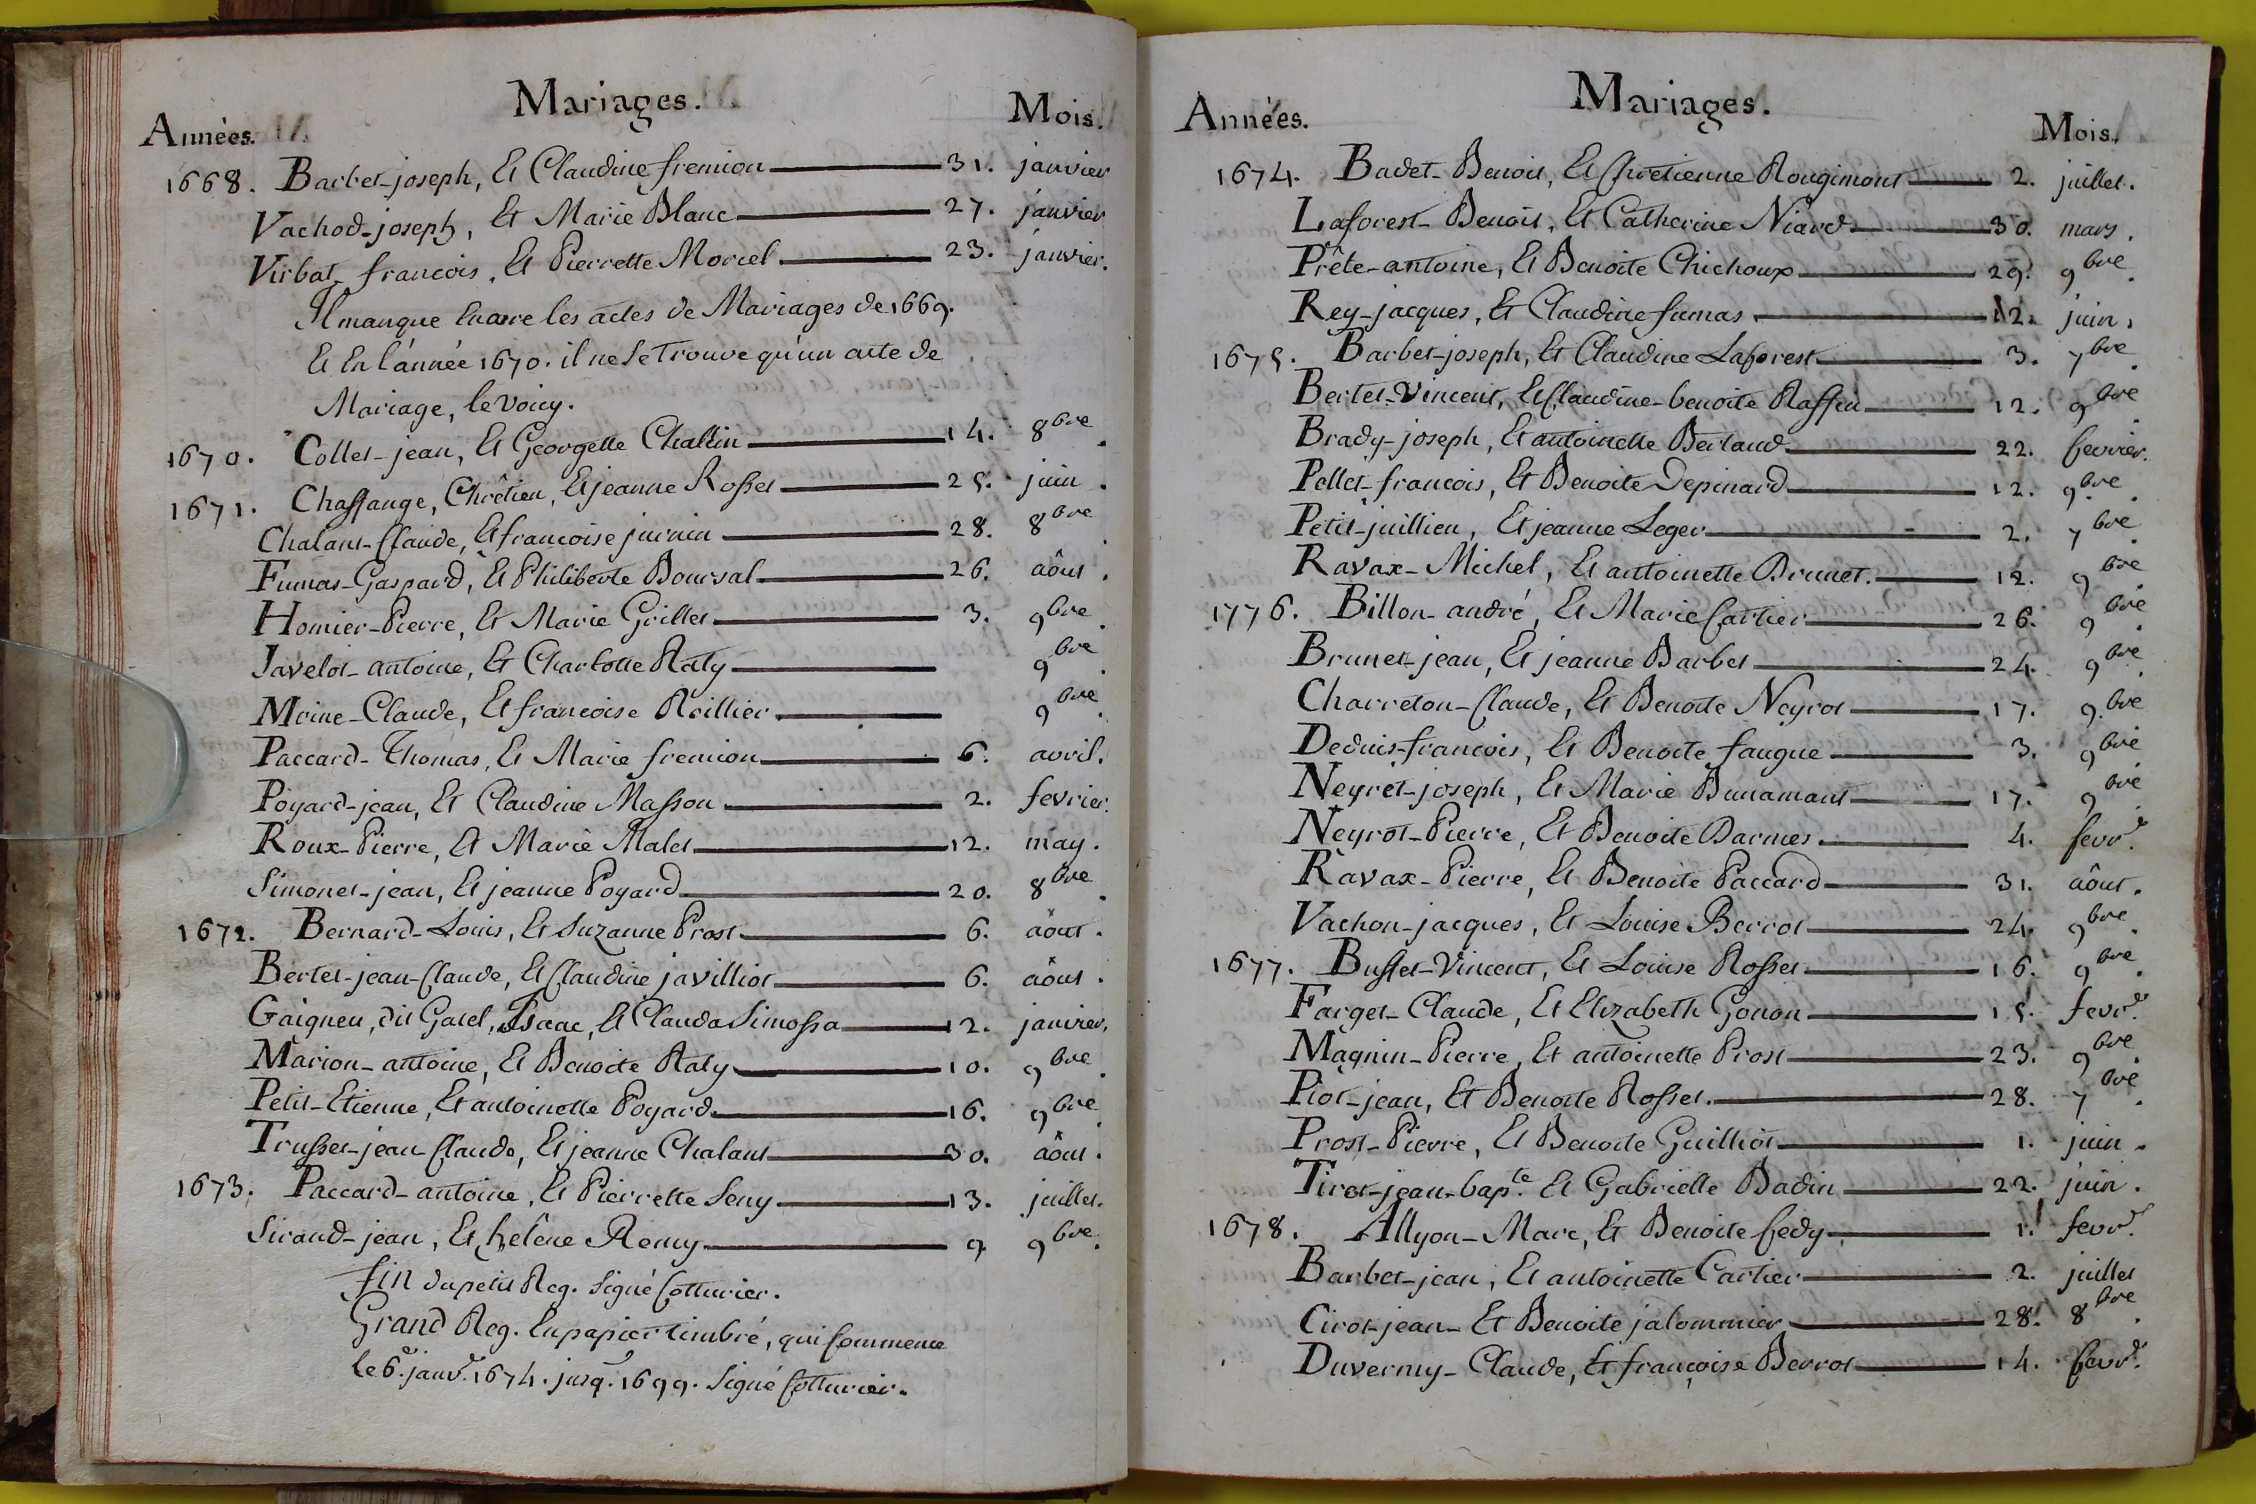 Mariages.
Années. Mois.
1668. Barbet-joseph, Et Claudine fremion 31. janvier
Vachod-joseph, Et Marie Blanc 27. janvier
Virbat-francois, Et Pierrette Morcel 23. janvier.
Il manque Encore les actes de Mariages de 1669.
Et En l'année 1670. il ne se Trouve qu'un acte de
Mariage, le voicy.
1670. Collet-jean, Et Georgette Chaltin 14. 8bre.
1671. Chassange, Chrêtien, Et jeanne Rosset 25. juin.
Chalant-Claude, Et francoise juenin 28. 8bre.
Fumas-Gaspard, Et Philiberte Boursal 26. aôut.
Homier-Pierre, Et Marie Grillet 3. 9bre.
Javelot-antoine, Et Charlotte Raty 9bre.
Moine-Claude, Et francoise Roillier 9bre.
Paccard-Thomas, Et Marie fremion 6. avril.
Poyard-jean, Et Claudine Masson 2. fevrier.
Roux-Pierre, Et Marie Malet 12. may.
Simonet-jean, Et jeanne Poyard 20. 8bre.
1672. Bernard-Louis, Et Suzanne Prost 6. aôut.
Bertet-jean-Claude, Et Claudine javilliot 6. aôut.
Gaigneu, dit Gatel, Isaac, Et Clauda Simossa 12. janvier.
Marion-antoine, Et Benoite Raty 10. 9bre.
Petit-Etienne, Et antoinette Poyard 16. 9bre.
Trusset-jean Claude, Et jeanne Chalant 30. aôut.
1673. Paccard-antoine, Et Pierrette Seny 13. juillet.
Sirand-jean, Et helêne Remy 9 9bre.
fin du petit Reg. signé Cotturier.
Grand Reg. En papier timbré, qui Commence
le 6e. janvr. 1674. jusq. 1699. Signé Cotturier.
Mariages.
Années. Mois.
1674. Badet-Benoit, Et Chretienne Rougimont 2. juillet.
Laforest-Benoit, Et Catherine Niard 30. mars.
Prête-antoine, Et Benoite Chichoux 29. 9bre.
Rey-jacques, Et Claudine fumas 12. juin.
1675. Barbet-joseph, Et Claudine Laforest 3. 7bre.
Bertet-Vincent, Et Claudine-benoite Raffin 12. 9bre.
Brady-joseph, Et antoinette Bertaud 22. fevrier.
Pellet-francois, Et Benoite Depinard 12. 9bre.
Petit-juillien, Et jeanne Leger 2. 7bre.
Ravax-Michel, Et antoinette Brunet. 12. 9bre.
1776. Billon-andré, Et Marie Cartier 26. 9bre.
Brunet-jean, Et jeanne Barbet 24. 9bre.
Charreton-Claude, Et Benoite Neyrot 17. 9bre.
Deduis-francois, Et Benoite faugue 3. 9bre.
Neyret-joseph, Et Marie Dunamant 17. 9bre.
Neyrot-Pierre, Et Benoite Darmes 4. fevrr.
Ravax-Pierre, Et Benoite Paccard 31. aôut.
Vachon-jacques, Et Louise Berrot 24. 9bre.
1677. Busset-Vincent, Et Louise Rosset 16. 9bre.
Farget-Claude, Et Elizabeth Gonon 15. fevrr.
Magnin-Pierre, Et antoinette Prost 23. 9bre.
Piot-jean, Et Benoite Rosset. 28. 7bre.
Prost-Pierre, Et Benoite Guilliot 1. juin.
Tirot-jean-bapte. Et Gabrielle Badin 22. juin.
1678. Allyon-Marc, Et Benoite Cedy 1. fevrr.
Barbet-jean, Et antoinette Cartier 2. juillet
Cirot-jean-Et Benoite jatommier 28. 8bre.
Duverny-Claude, Et françoise Berrot 14. fevrr.